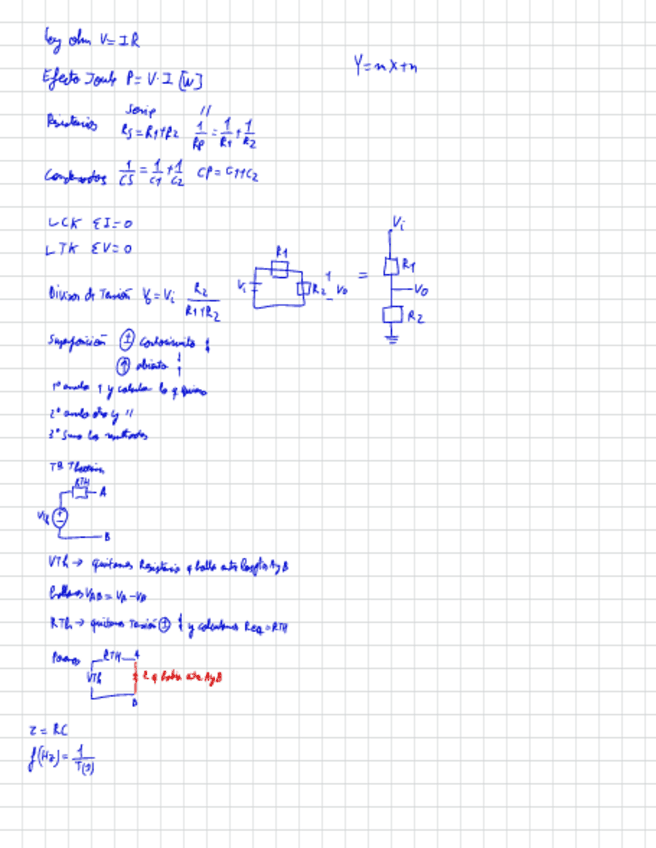 Ley ohm V=IR
Y=mX+n
Efecto Joule P=V·I [W]
Serie //
Resistencias RS=R1+R2 1/RP=1/R1+1/R2
Condensadores 1/CS=1/C1+1/C2 CP=C1+C2
LCK ΣI=0
LTK ΣV=0
Divisor de Tensión V0=Vi R2/(R1+R2)
Vi R1 R2 V0 = Vi R1 V0 R2
Superposición cortocircuito
abierto
1º anulo 1 y calculo lo q quiero
2º anulo otro y //
3º Sumo los resultados
Thevenin
RTH A
Vth B
VTh → quitamos Resistencia q halla entre los ptos A y B
hallamos VAB=VA-VB
RTh → quitamos Tensión y calculamos Req=RTH
Ponemos RTH A
VTh R q había entre A y B
B
τ=RC
f(Hz)=1/T(s)